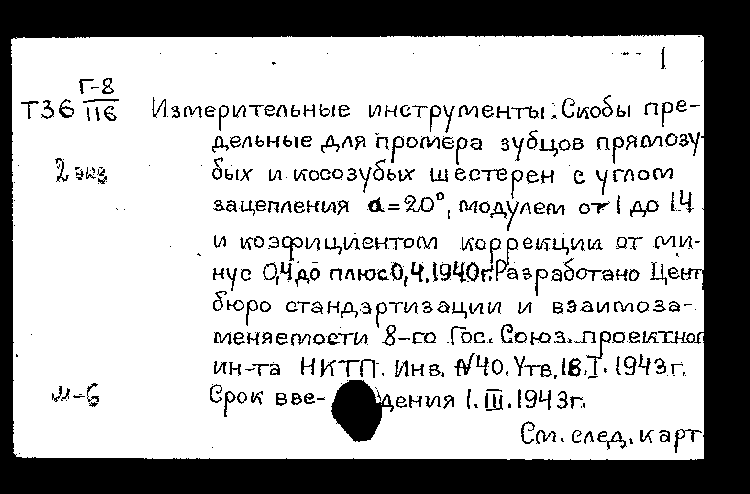 1
Г-8
Т36 116 Измерительные инструменты: Скобы пре-
дельные для промера зубцов прямозу
2 экз бых и косозубых шестерен с углом
зацепления α=20°, модулем от 1 до 14
и коэфициентом коррекции от ми-
нус 0,4 до плюс 0,4. 1940г. Разработано Цент
бюро стандартизации и взаимоза-
меняемости 8-го Гос. Союз. проектног
ин-та НКТП. Инв. №40. Утв. 16.I. 1943г.
м-6 Срок вве- дения 1.III.1943г.
См. след. карт